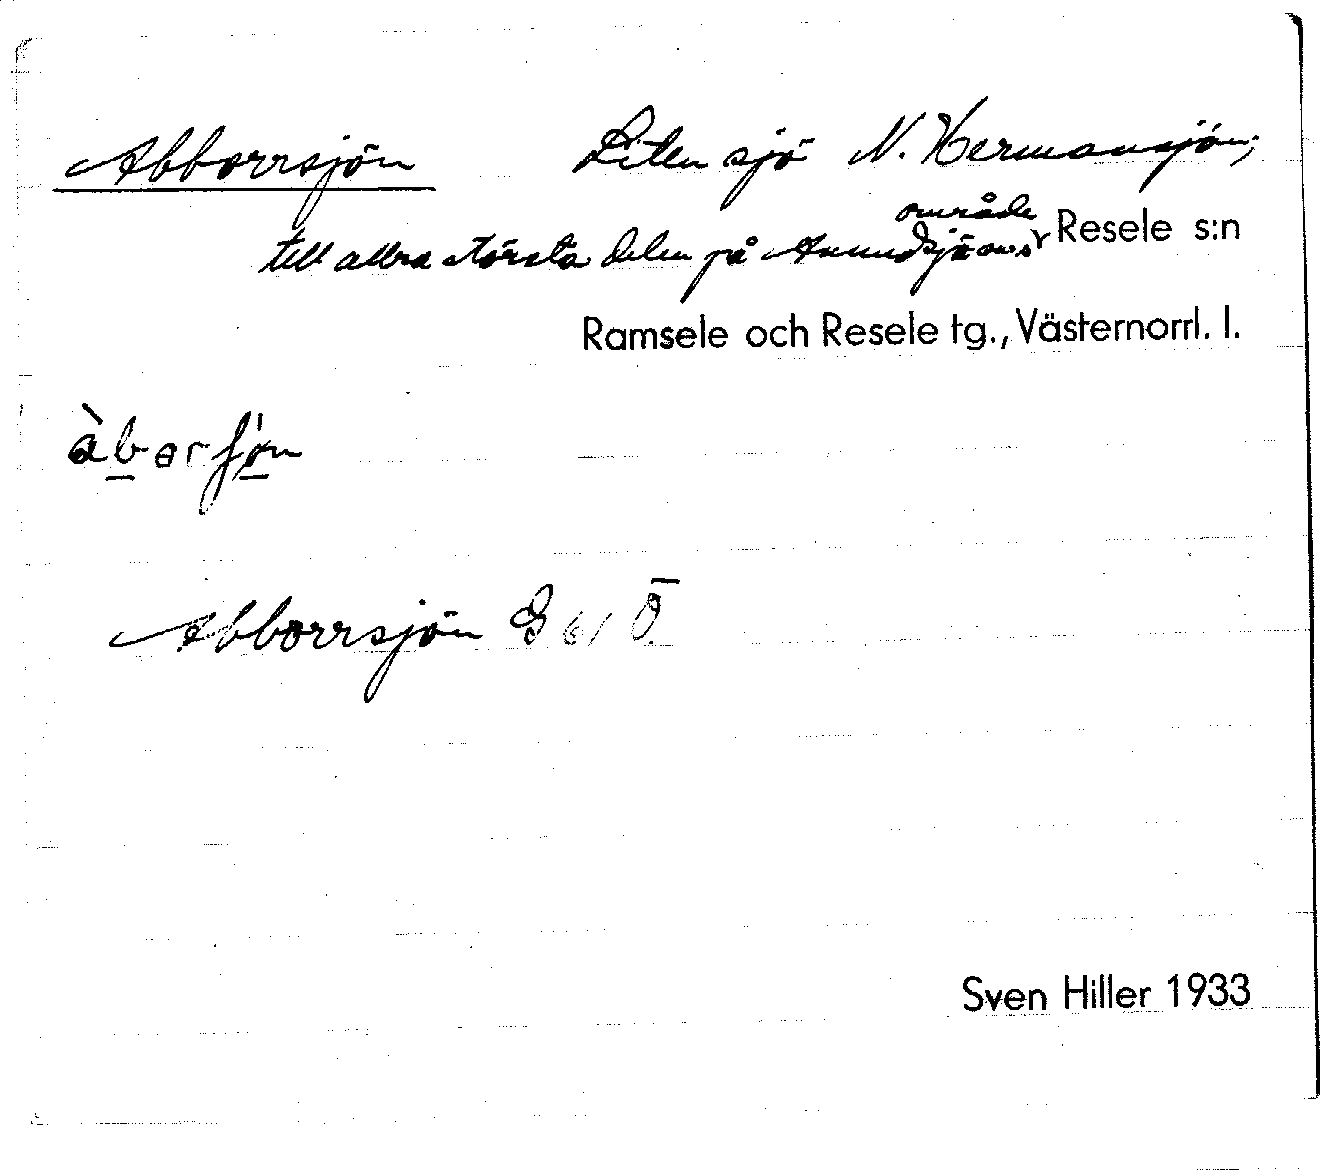 Abborrsjön Liten sjö N. Hermansjön;
till allra största delen på Anundsjöans område Resele s:n
Ramsele och Resele tg., Västernorrl. l.
àbarʃơn
Abborrsjön G 61 Ö
Sven Hiller 1933